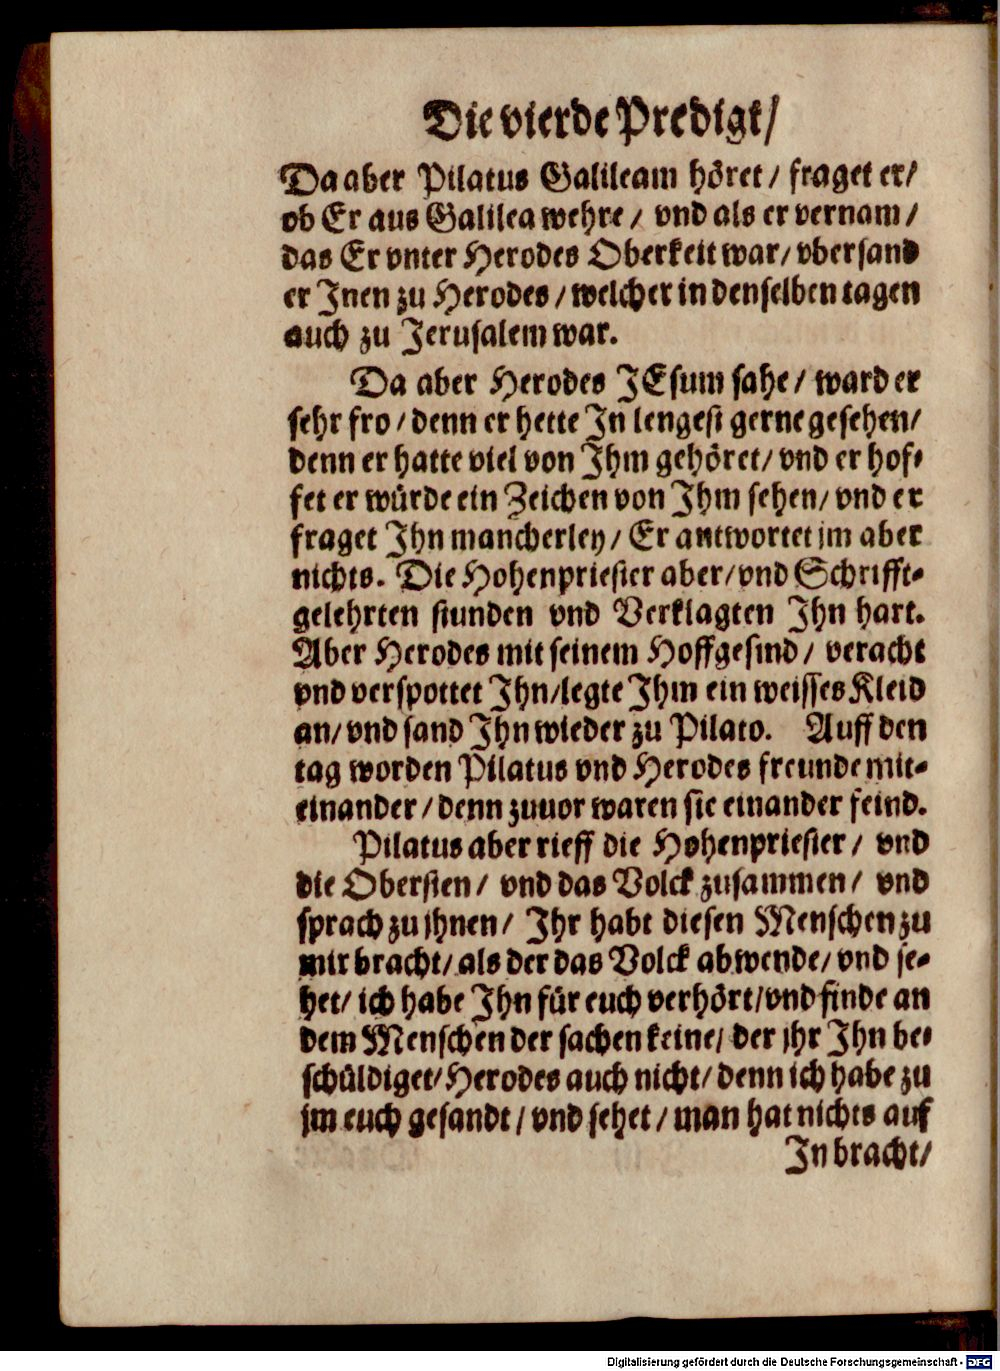 Die vierde Predigt/
Da aber Pilatus Galileam höret / fraget er/
ob Er aus Galilea wehre / vnd als er vernam /
das Er vnter Herodes Oberkeit war/ vbersand
er Jnen zu Herodes / welcher in denselben tagen
auch zu Jerusalem war.
Da aber Herodes JEsum sahe / ward er
sehr fro / denn er hette Jn lengest gerne gesehen/
denn er hatte viel von Jhm gehöret/ vnd er hof-
fet er würde ein Zeichen von Jhm sehen/ vnd er
fraget Jhn mancherley / Er antwortet jm aber
nichts. Die Hohenpriester aber/ vnd Schrifft-
gelehrten stunden vnd Verklagten Jhn hart.
Aber Herodes mit seinem Hoffgesind / veracht
vnd verspottet Jhn/ legte Jhm ein weisses Kleid
an/ vnd sand Jhn wieder zu Pilato. Auff den
tag worden Pilatus vnd Herodes freunde mit-
einander / denn zuuor waren sie einander feind.
Pilatus aber rieff die Hohenpriester / vnd
die Obersten / vnd das Volck zusammen / vnd
sprach zu jhnen / Jhr habt diesen Menschen zu
mir bracht/ als der das Volck abwende/ vnd se-
het/ ich habe Jhn für euch verhört/ vnd finde an
dem Menschen der sachen keine/ der jhr Jhn be-
schüldiget/ Herodes auch nicht/ denn ich habe zu
jm euch gesandt / vnd sehet / man hat nichts auf
Jn bracht/
Digitalisierung gefördert durch die Deutsche Forschungsgemeinschaft - DFG